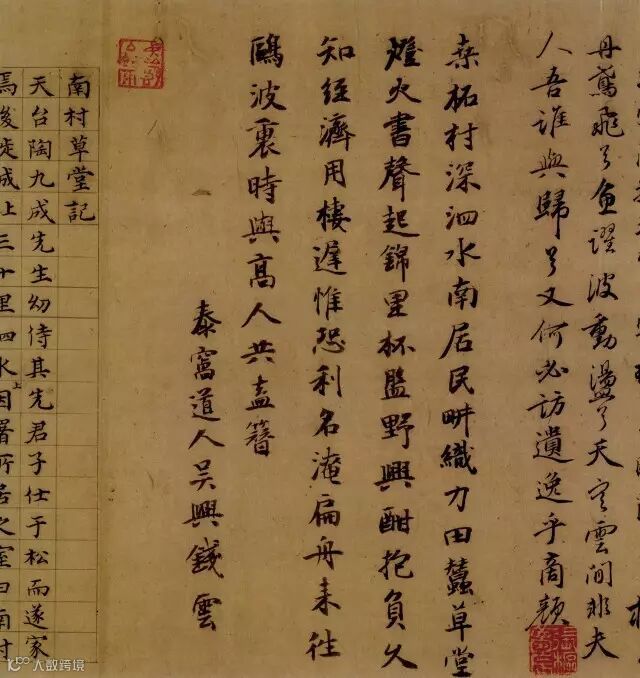 丹鳶飛兮魚躍波動盪兮天宇雲間非夫
人吾誰與歸兮又何必訪遺逸乎商顏
桑柘村深泗水南居民畊織力田蠶草堂
燈火書聲起錦里杯盤野興酣抱負久
知經濟用棲遲惟恐利名淹扁舟来往
鷗波裏時與高人共盍簪
泰窩道人吳興錢雲
南村草堂記
天台陶九成先生幼侍其先君子仕于松而遂家
焉後徙成上三十里泗水上因署所居之室曰南村
大数跨境